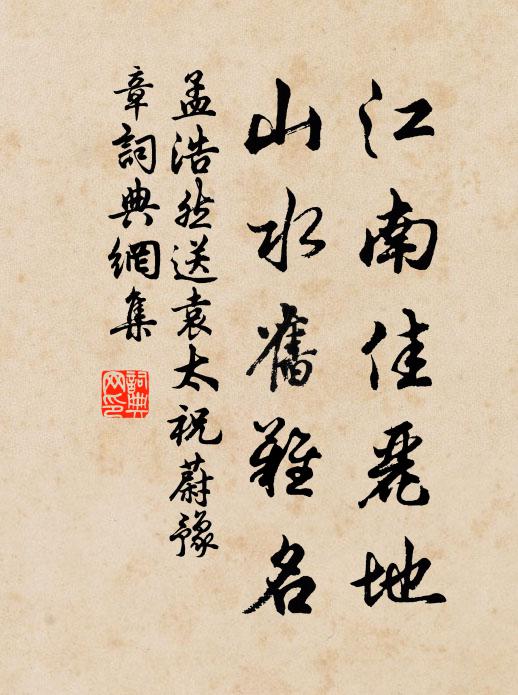 江南佳麗地
山水舊難名
孟浩然送袁太祝蔚豫
章詞典網集
詞典
网印